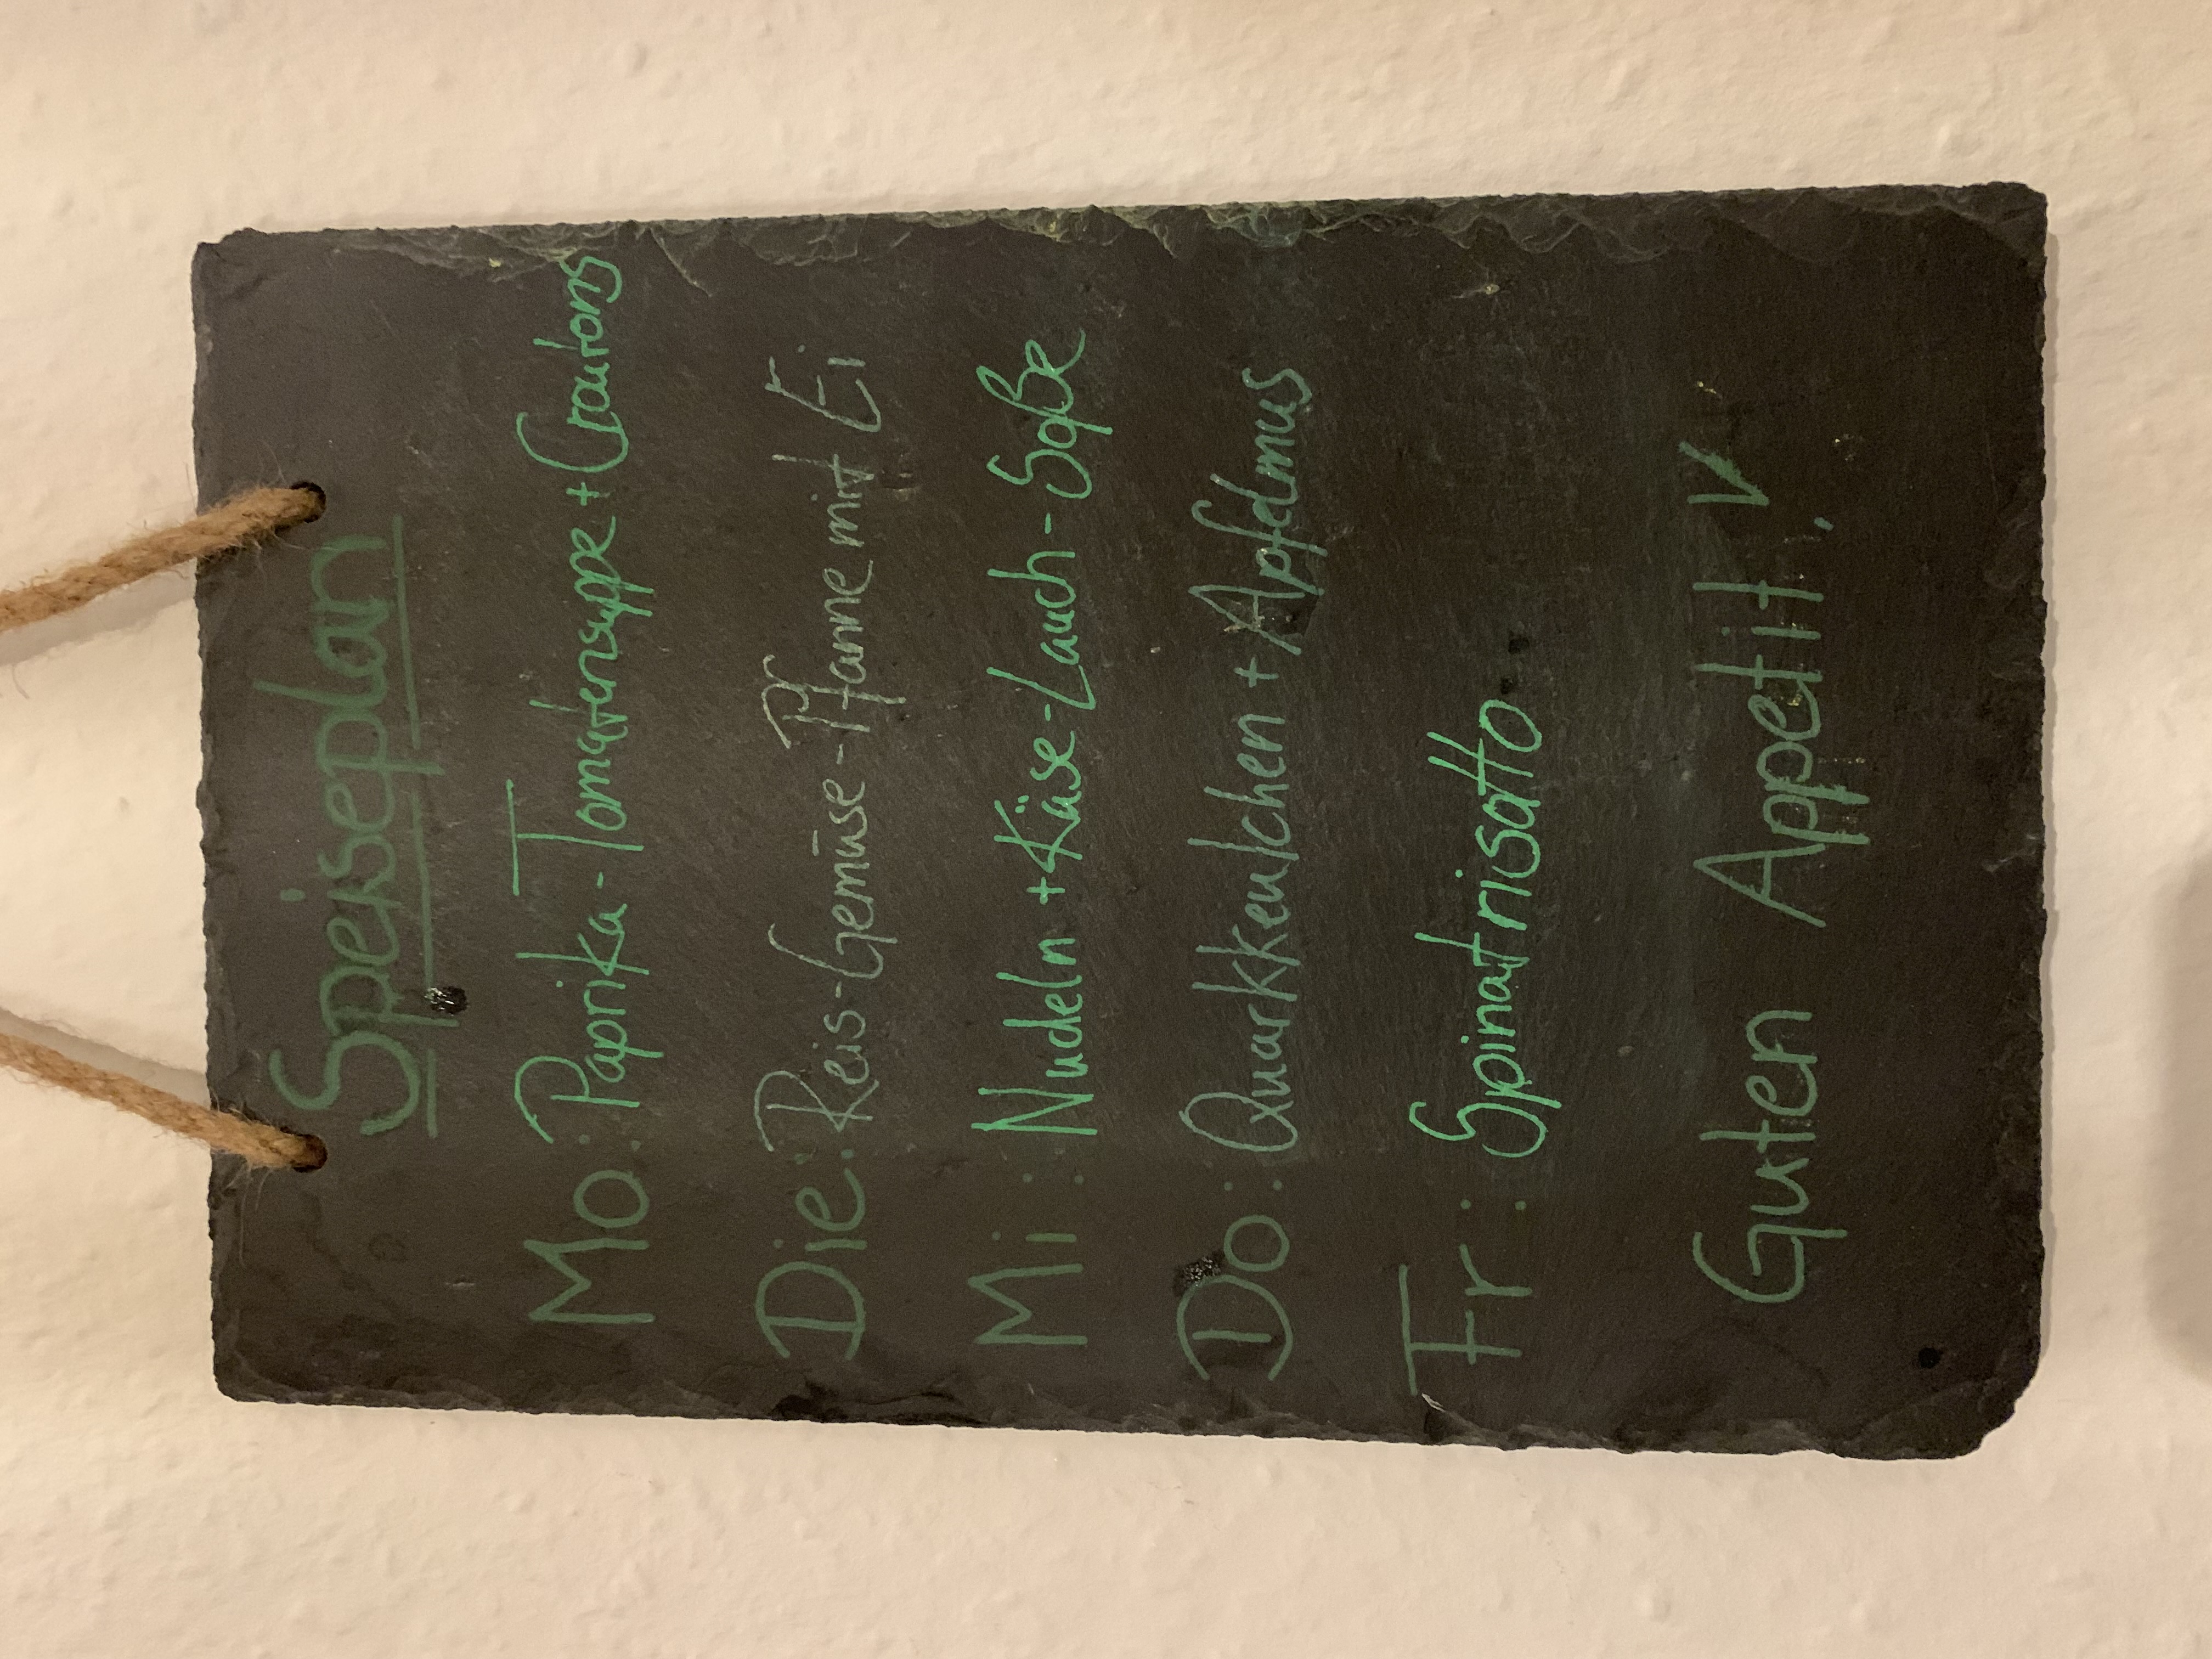 Speiseplan
Mo: Paprika-Tomatensuppe + Croutons
Die: Reis-Gemüse-Pfanne mit Ei
Mi: Nudeln + Käse-Lauch-Soße
Do: Quarkkeulchen + Apfelmus
Fr: Spinatrisotto
Guten Appetit!